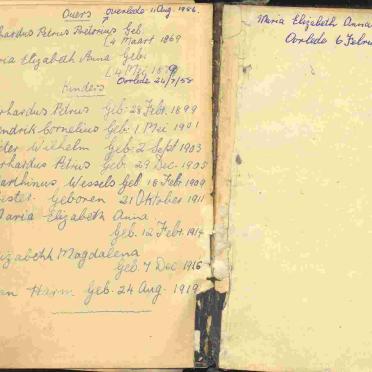 Ouers overlede 11 Aug. 1956.
hardus Petrus Pretorius Geb
4 Maart 1869
ria Elizabeth Anna Geb:
Oorlede 24/7/58
Kinders
erhardus Petrus Geb. 28 Febr. 1899
endrik Cornelius Geb. 1 Mei 1901
ieter Wilhelm Geb. 2 Sept 1903
erhardus Petrus Geb. 29 Dec. 1905
arthinus Wessels Geb. 18 Febr. 1909
ester Geboren 21 Oktober 1911
Maria Elizabeth Anna
Geb. 12 Febr. 1914
lizabeth Magdalena
Geb. 7 Dec 1916
an Harm Geb. 24 Aug. 1919
Maria Elizabeth Anna
Oorlede 6 Febru